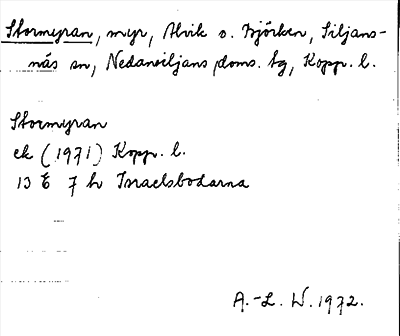 Stormyran, myr, Alvik o. Björken, Siljans-
näs sn, Nedansiljans doms. tg, Kopp. l.
Stormyran
ek (1971) Kopp. l.
13 E 7 h Israelsbodarna
A.-L. W. 1972.